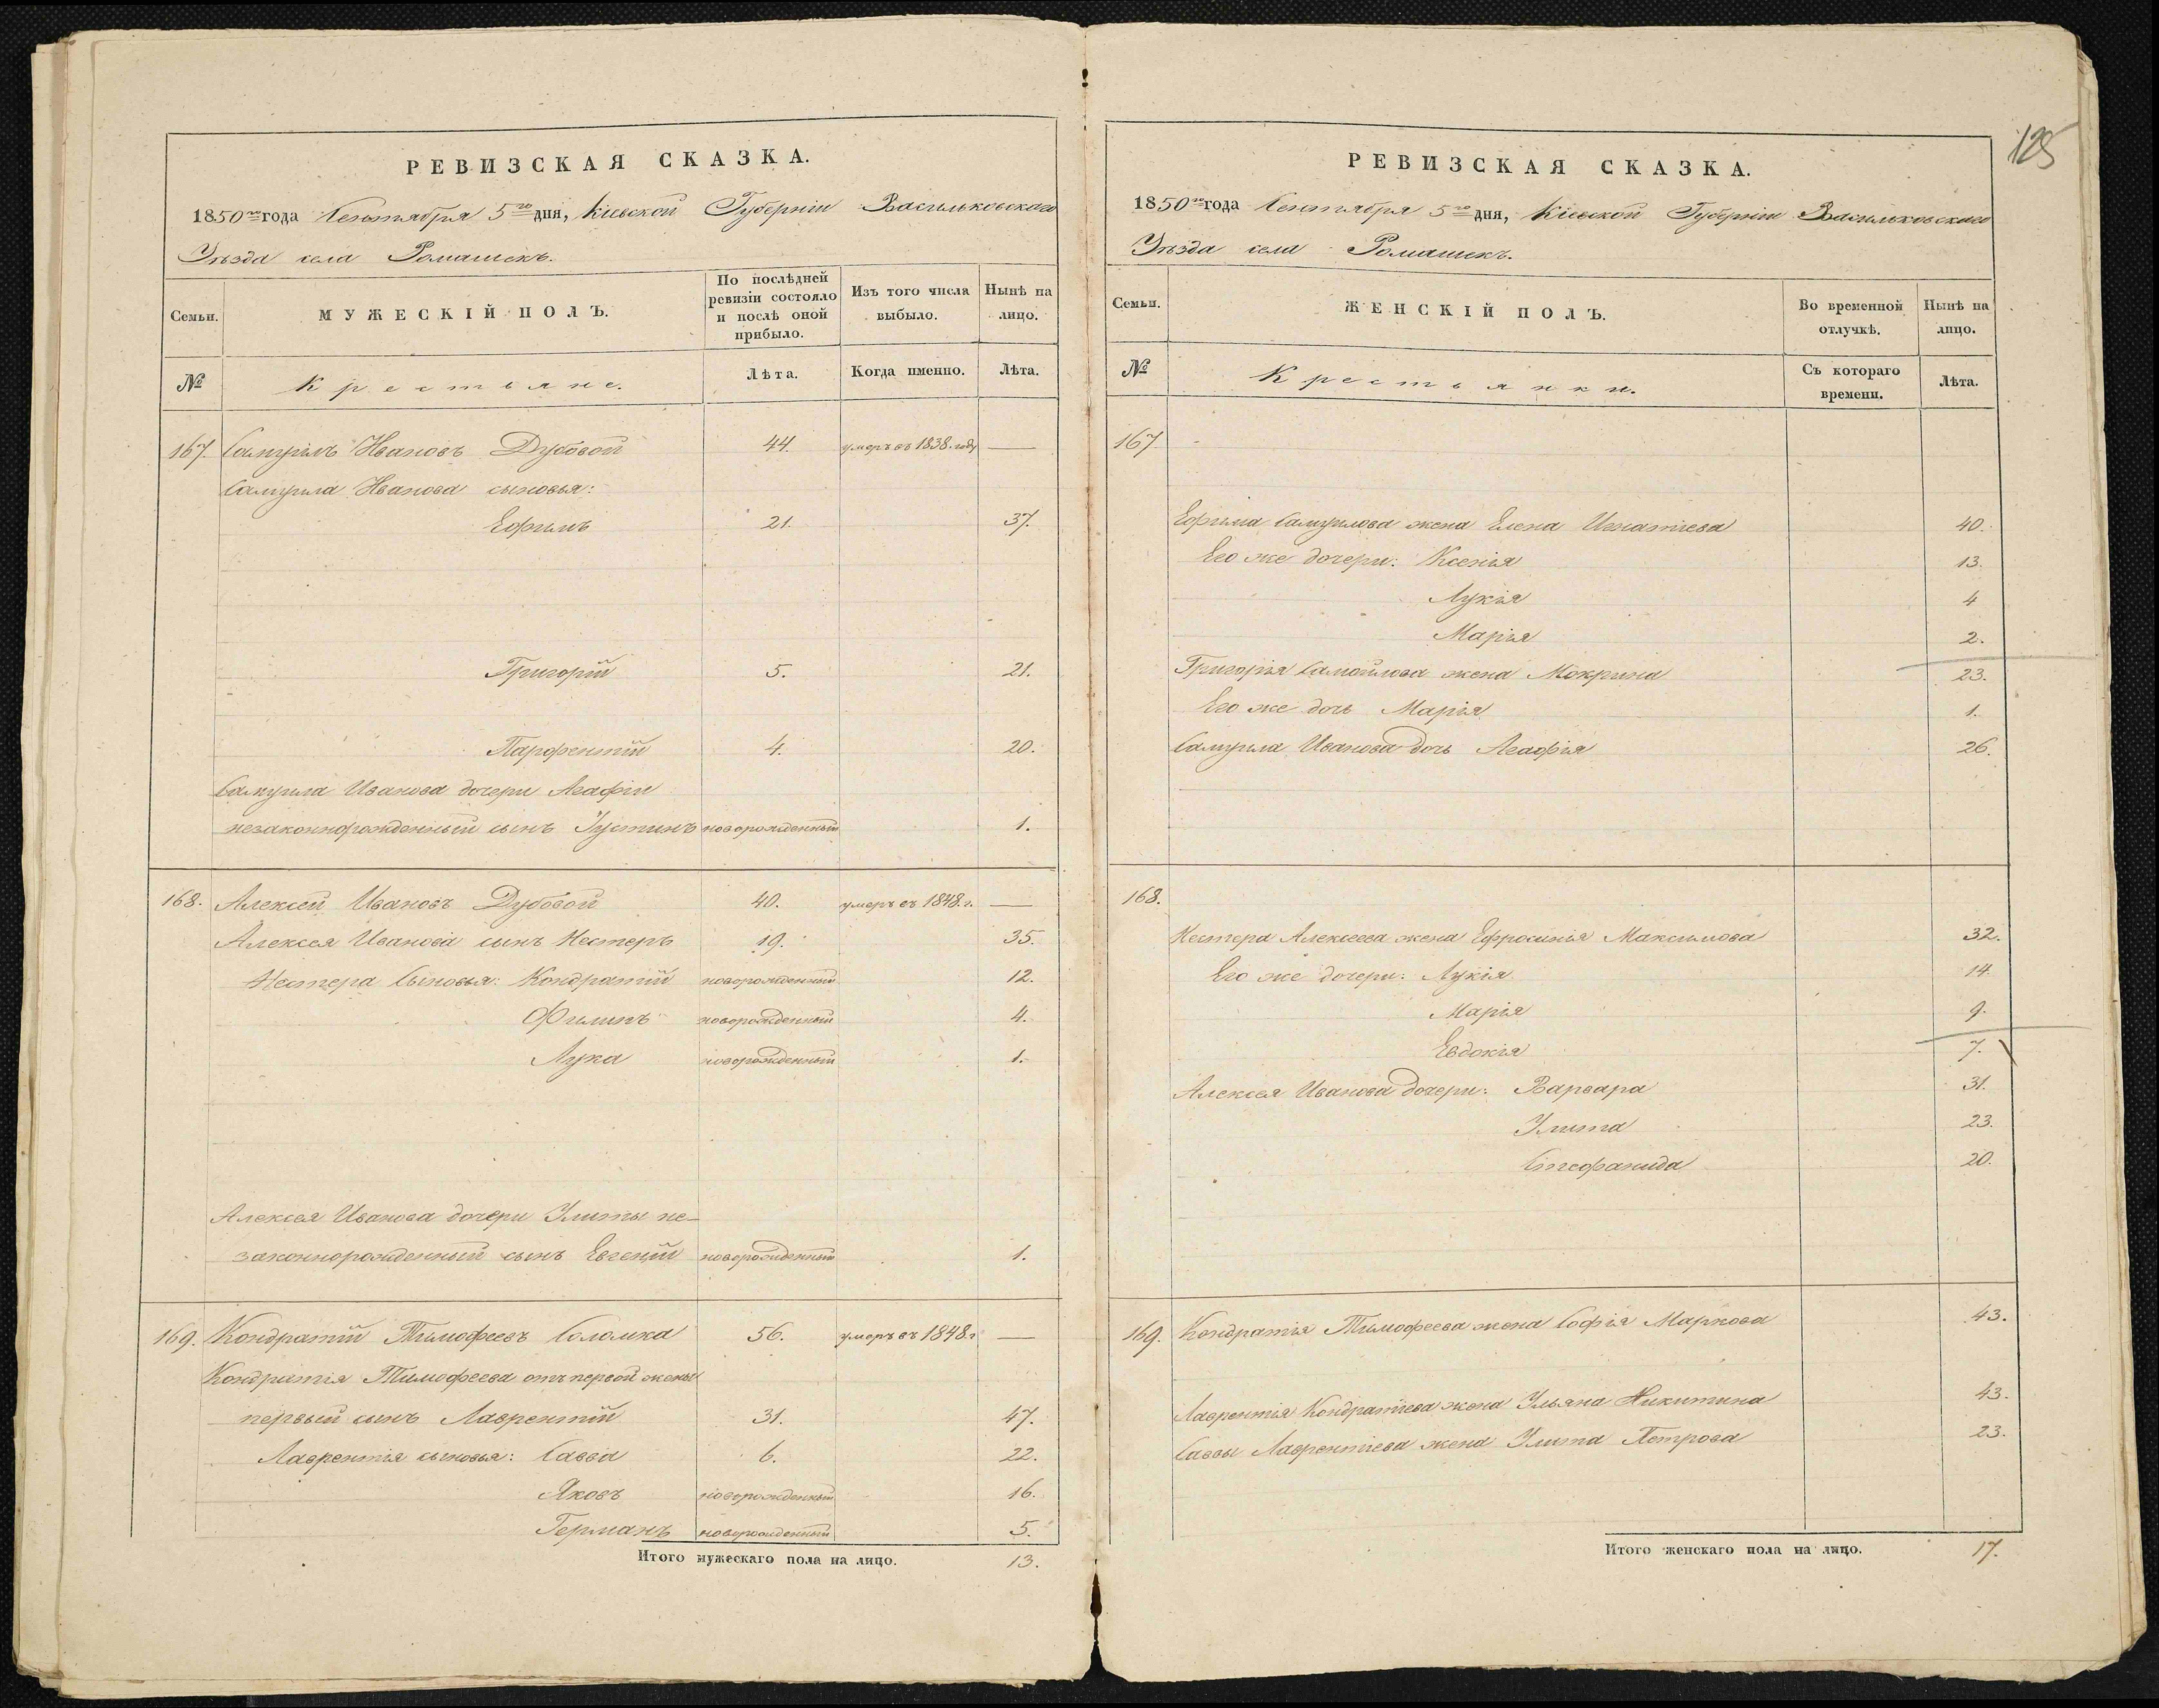 РЕВИЗСКАЯ СКАЗКА.
1850го года Сентября 5го дня, Кіевской Губерніи Васильковскаго
Уѣзда села Ромашекъ.
Семьи.
МУЖЕСКІЙ ПОЛЪ.
По послѣдней ревизіи состояло и послѣ оной прибыло.
Изъ того числа выбыло.
Нынѣ на лицо.
№
Крестьяне.
Лѣта.
Когда именно.
Лѣта.
167. Самуилъ Ивановъ Дубовой 44. умеръ въ 1838. году —
Самуила Иванова сыновья:
Ефимъ 21. 37.
Григорій 5. 21.
Парфентій 4. 20.
Самуила Иванова дочери Агафіи
незаконнорожденный сынъ Іустинъ новорожденный 1.
168. Алексей Ивановъ Дубовой 40. умеръ въ 1848. г. —
Алексея Иванова сынъ Нестеръ 19. 35.
Нестера Сыновья: Кондратій новорожденный 12.
Филипъ новорожденный 4.
Лука новорожденный 1.
Алексея Иванова дочери Улиты не-
законнорожденный сынъ Евгеній новорожденный 1.
169. Кондратій Тимофеевъ Соломка 56. умеръ въ 1848 г —
Кондратія Тимофеева отъ первой жены
первый сынъ Лаврентій 31. 47.
Лаврентія сыновья: Савва 6. 22.
Яковъ новорожденный 16.
Германъ новорожденный 5.
Итого мужескаго пола на лицо. 13.
125
РЕВИЗСКАЯ СКАЗКА.
1850го года Сентября 5го дня, Кіевской Губерніи Васильковскаго
Уѣзда села Ромашекъ.
Семьи.
ЖЕНСКІЙ ПОЛЪ.
Во временной отлучкѣ.
Нынѣ на лицо.
№
Крестьянки.
Съ котораго времени.
Лѣта.
167
Ефима Самуилова жена Елена Игнатіева 40.
Его же дочери: Ксенія 13.
Лукія 4
Марія 2.
Григорія Самойлова жена Мокрина 23.
Его же дочь Марія 1.
Самуила Иванова дочь Агафія 26.
168.
Нестера Алексеева жена Ефросинія Максимова 32.
Его же дочери: Лукія 14.
Марія 9.
Евдокія 7.
Алексея Иванова дочери: Варвара 31.
Улита 23.
Стефанида 20.
169. Кондратія Тимофеева жена Софія Маркова 43.
Лаврентія Кондратіева жена Ульяна Никитина 43.
Саввы Лаврентіева жена Улита Петрова 23.
Итого женскаго пола на лицо. 17.